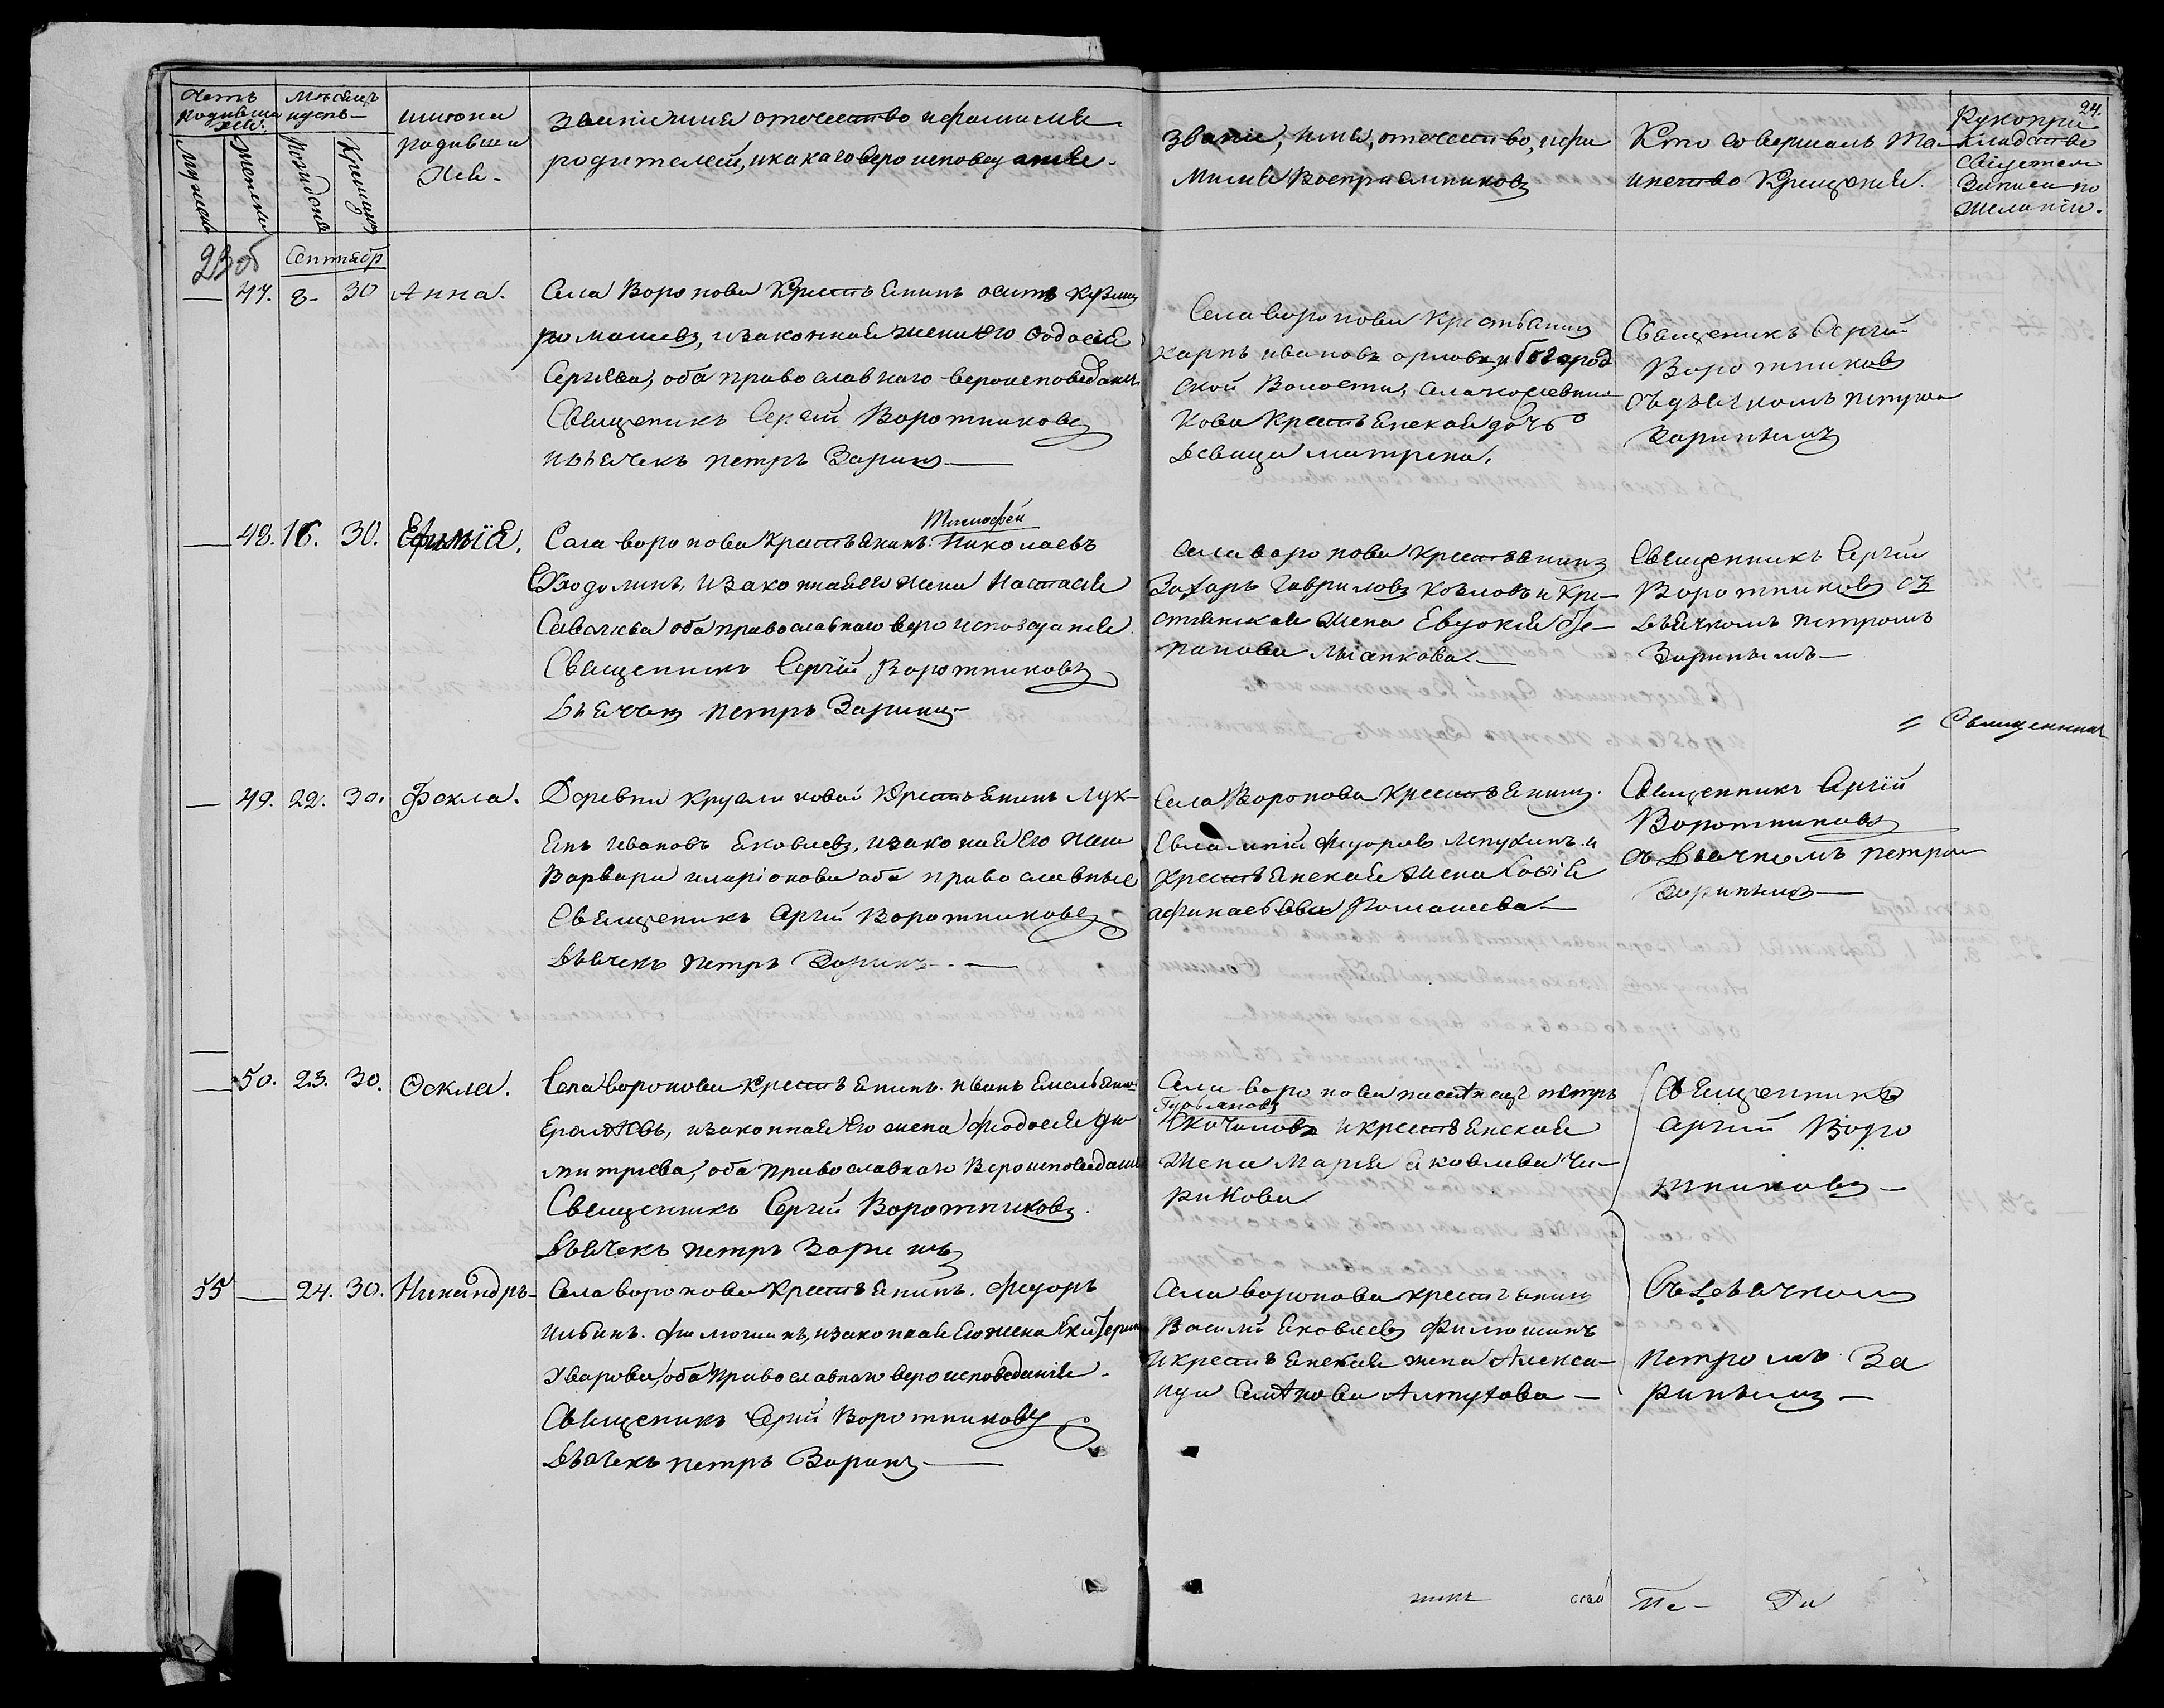 24.
Счетъ родившихся.
Мѣсяцъ и день
Мужеска
Женска
Рожденія
Крещенія
Имена
родивши
хся.
Званіе имя отечество и фамилія
родителей, и какаго вероисповеданія.
Званіе, имя, отечество, и фа
милія Воспріемниковъ
Кто совершалъ Та-
инство Крещенія.
Рукопри
кладство
свидетелей
записи по
желанію.
23об
Сентябр
— 47. 8- 30 Анна.
Села Воронова Крестьянинъ осипъ
ромашевъ, изаконная жена его Ѳодосія
Сергіева, оба православнаго вероисповеданія
Священикъ Сергій Воротниковъ
и дьячекъ петръ Заринъ —
Села воронова Крестьянинъ
карпъ ивановъ орловъ, и богород
ской Волости, села
Крестьянская дочь
девица матрена.
Священикъ Сергій
Воротниковъ
съ дьячкомъ петромъ
Заринымъ
— 48. 16. 30. Ефимія.
Тимофей
Села воронова Крестьянинъ. Николаевъ
изаконная его жена Настасія
Савельева оба православнаго вероисповеданія
Священикъ Сергій Воротниковъ
Дьячекъ петръ Заринъ
Села воронова крестьянинъ
Захаръ Гавриловъ Козловъ и Кре-
стьянская жена Евдокія Сте-
панова Лысенкова —
Священникъ Сергій
Воротниковъ съ
дьячкомъ петромъ
Зариnымъ —
= Священникъ
— 49. 22. 30. Фекла.
Деревни Кругликовой Крестьянинъ Лук-
янъ Ивановъ Яковлевъ, изаконая Его жена
Варвара иларіонова оба православные
Священикъ Сергій Воротниковъ
Дьячекъ петръ Заринъ. —
Села Воронова Крестьянинъ.
Евлампій Федоровъ Лепухинъ. и
Крестьянская жена Софія
афанасьева Ромашева —
Священникъ Сергій
Воротниковъ
съ Дьячкомъ петромъ
Заринымъ —
— 50. 23. 30. Ѳекла.
Села воронова крестьянинъ. иванъ Емельяновъ
Ермаковъ, изаконная Его жена Феодосія Ди
митріева, оба православнаго Вероисповеданія
Священникъ Сергій Воротниковъ.
Дьячекъ петръ Заринъ
Села воронова петръ
Гурьяновъ
Скачиловъ и крестьянская
жена Марія Яковлева Чи-
рикова
Священникъ
Сергій Воро
тниковъ —
55 — 24. 30. Никандръ.
Села воронова Крестьянинъ. Федоръ
Ильинъ. Филюшинъ, изаконная Его жена Екатерина
Уварова, оба православнаго вероисповеданія.
Священикъ Сергій Воротниковъ
Дьячекъ петръ Заринъ —
Села воронова крестьянинъ
Василій Яковлевъ Филюшинъ
и крестьянская жена Алекса-
ндра Семенова Алтухова —
Съ Дьячкомъ
петромъ За
ринымъ —